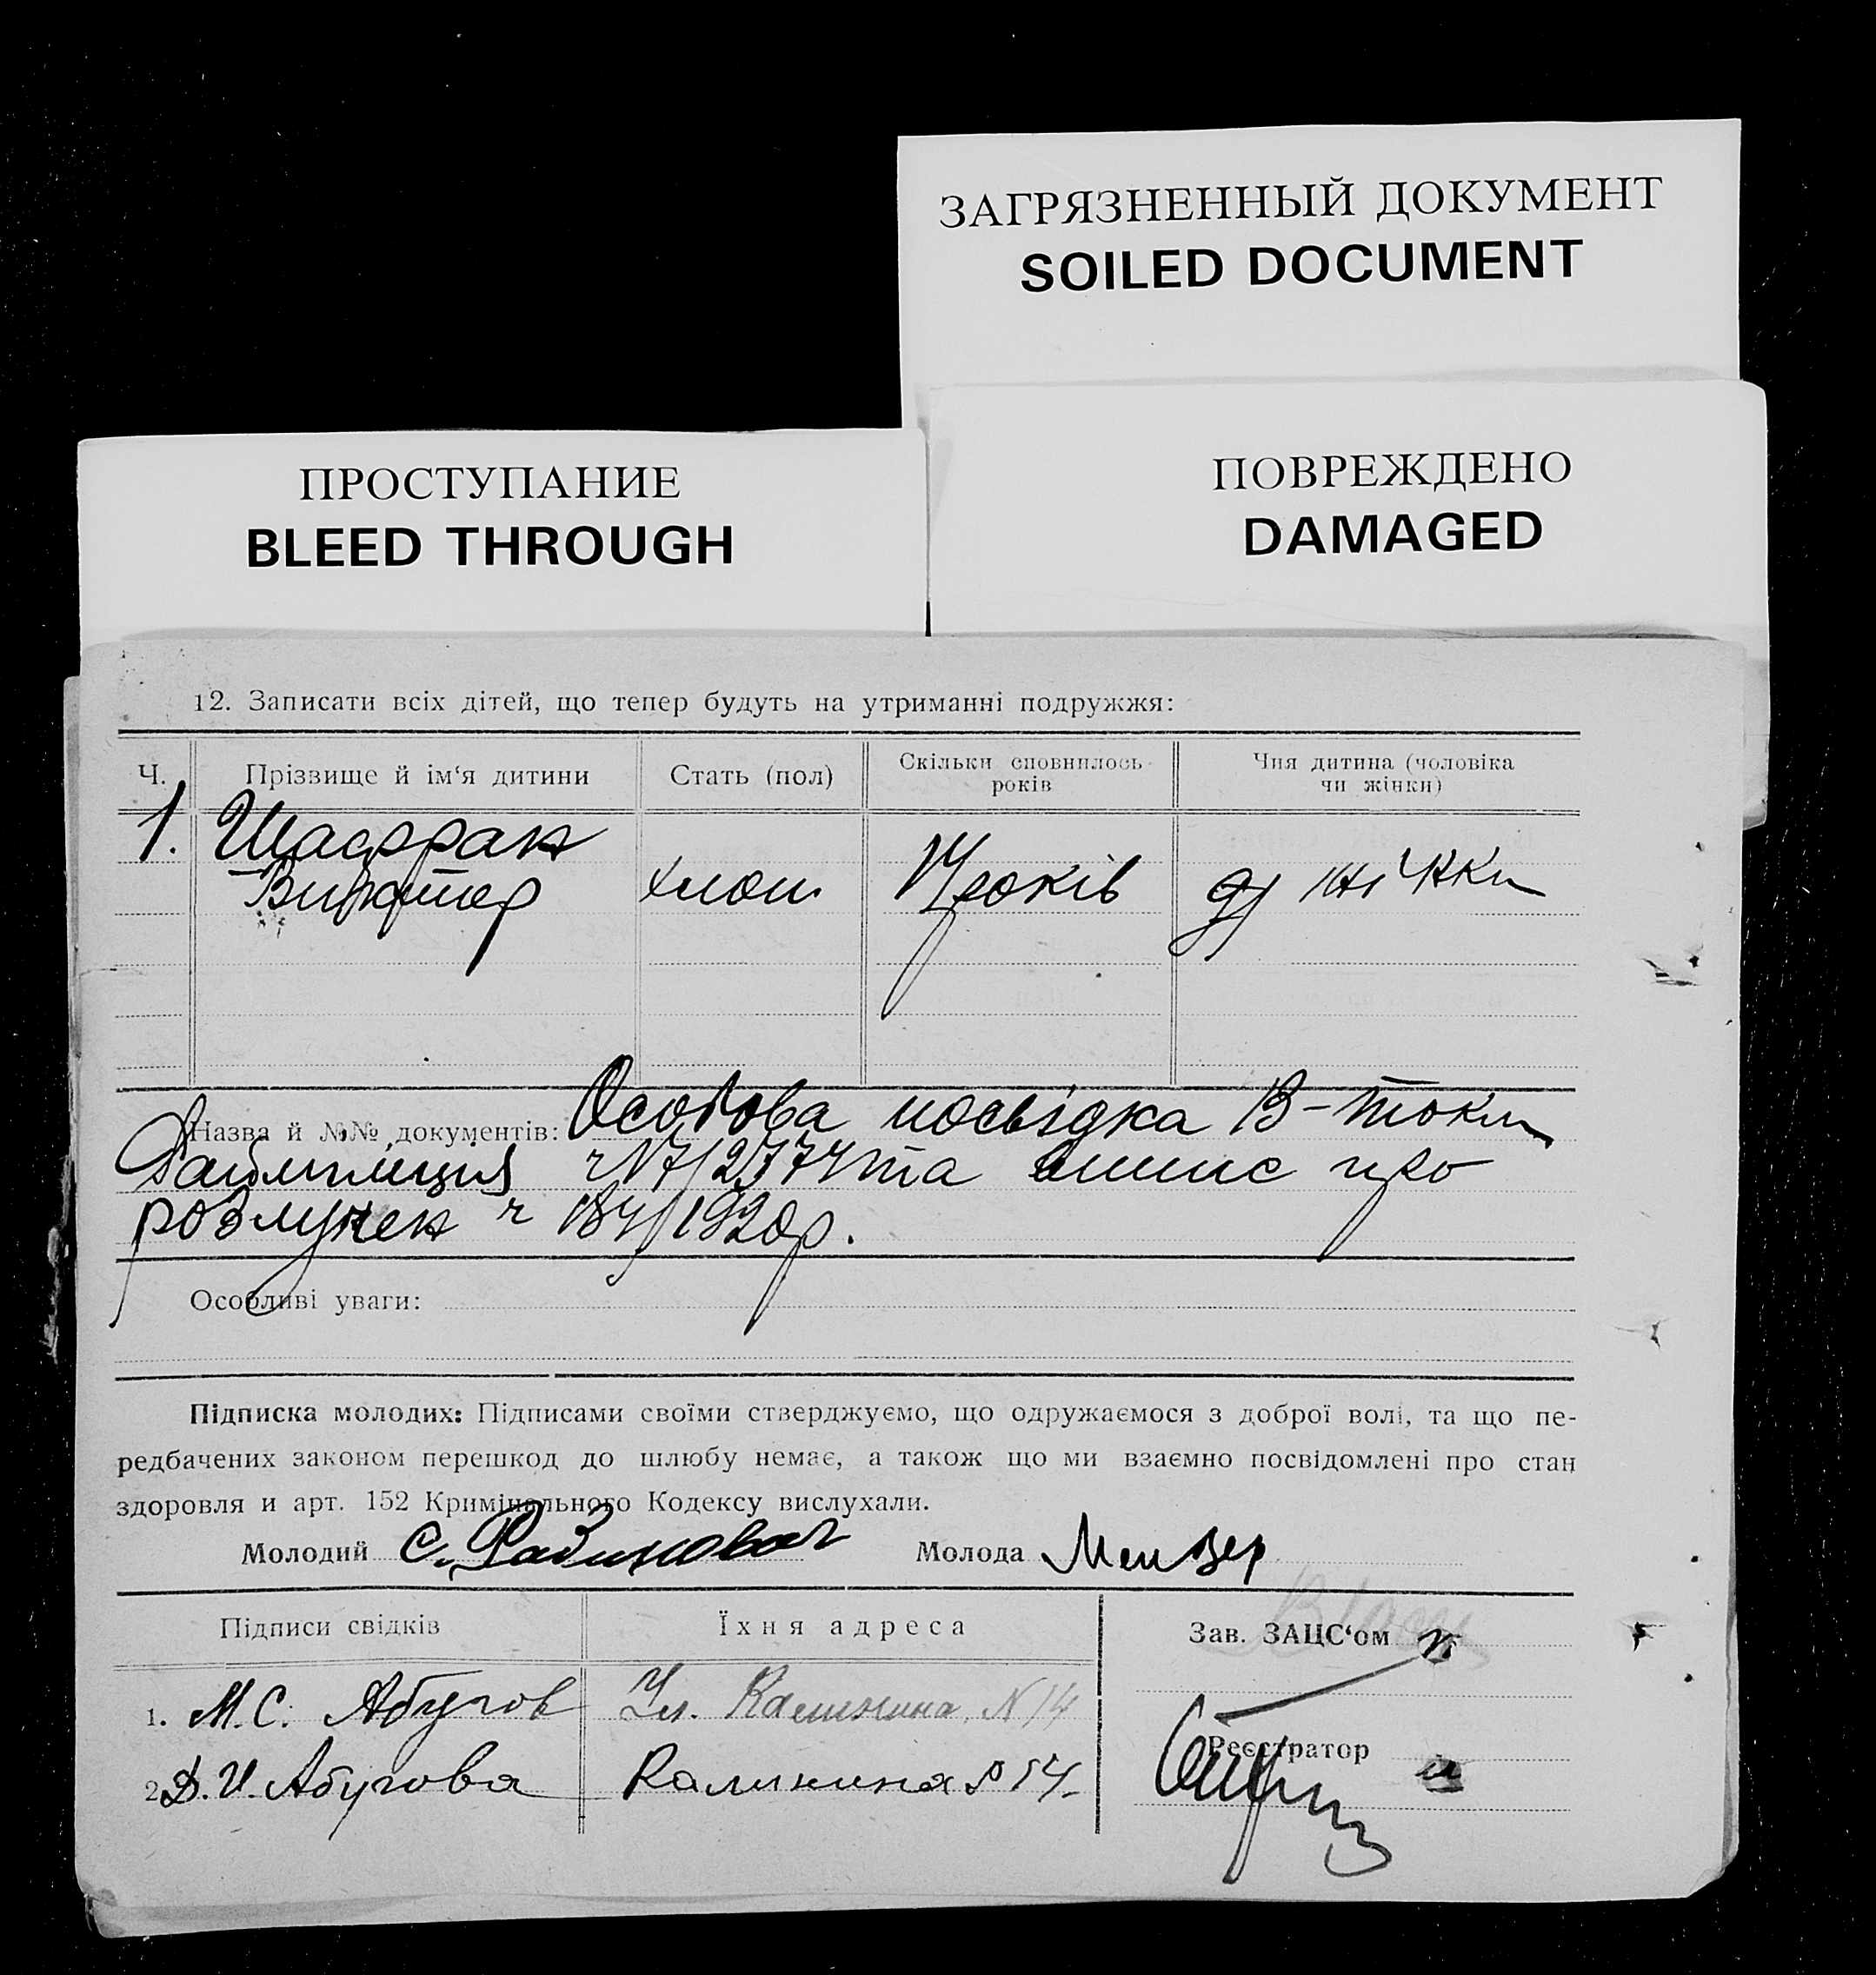 ЗАГРЯЗНЕННЫЙ ДОКУМЕНТ
SOILED DOCUMENT
ПРОСТУПАНИЕ
BLEED THROUGH
ПОВРЕЖДЕНО
DAMAGED
12. Записати всіх дітей, що тепер будуть на утриманні подружжя:
Ч. Прізвище й ім‘я дитини Стать (пол) Скільки сповнилось років Чия дитина (чоловіка чи жінки)
1. Шафран
Виктор хлоп років жінки
Назва й №№ документів: Особова посвідка В-токи
та випис про
розлучен ч
Особливі уваги:
Підписка молодих: Підписами своїми стверджуємо, що одружаємося з доброї волі, та що пе-
редбачених законом перешкод до шлюбу немає, а також що ми взаємно посвідомлені про стан
здоровля и арт. 152 Кримінального Кодексу вислухали.
Молодий С. Рабинович Молода Мензер
Підписи свідків Їхня адреса Зав. ЗАЦС‘ом
1. М.С. Абугов Ул. Калинина, N 14
Реєстратор
2. Д.И. Абугова Калинина № 14.